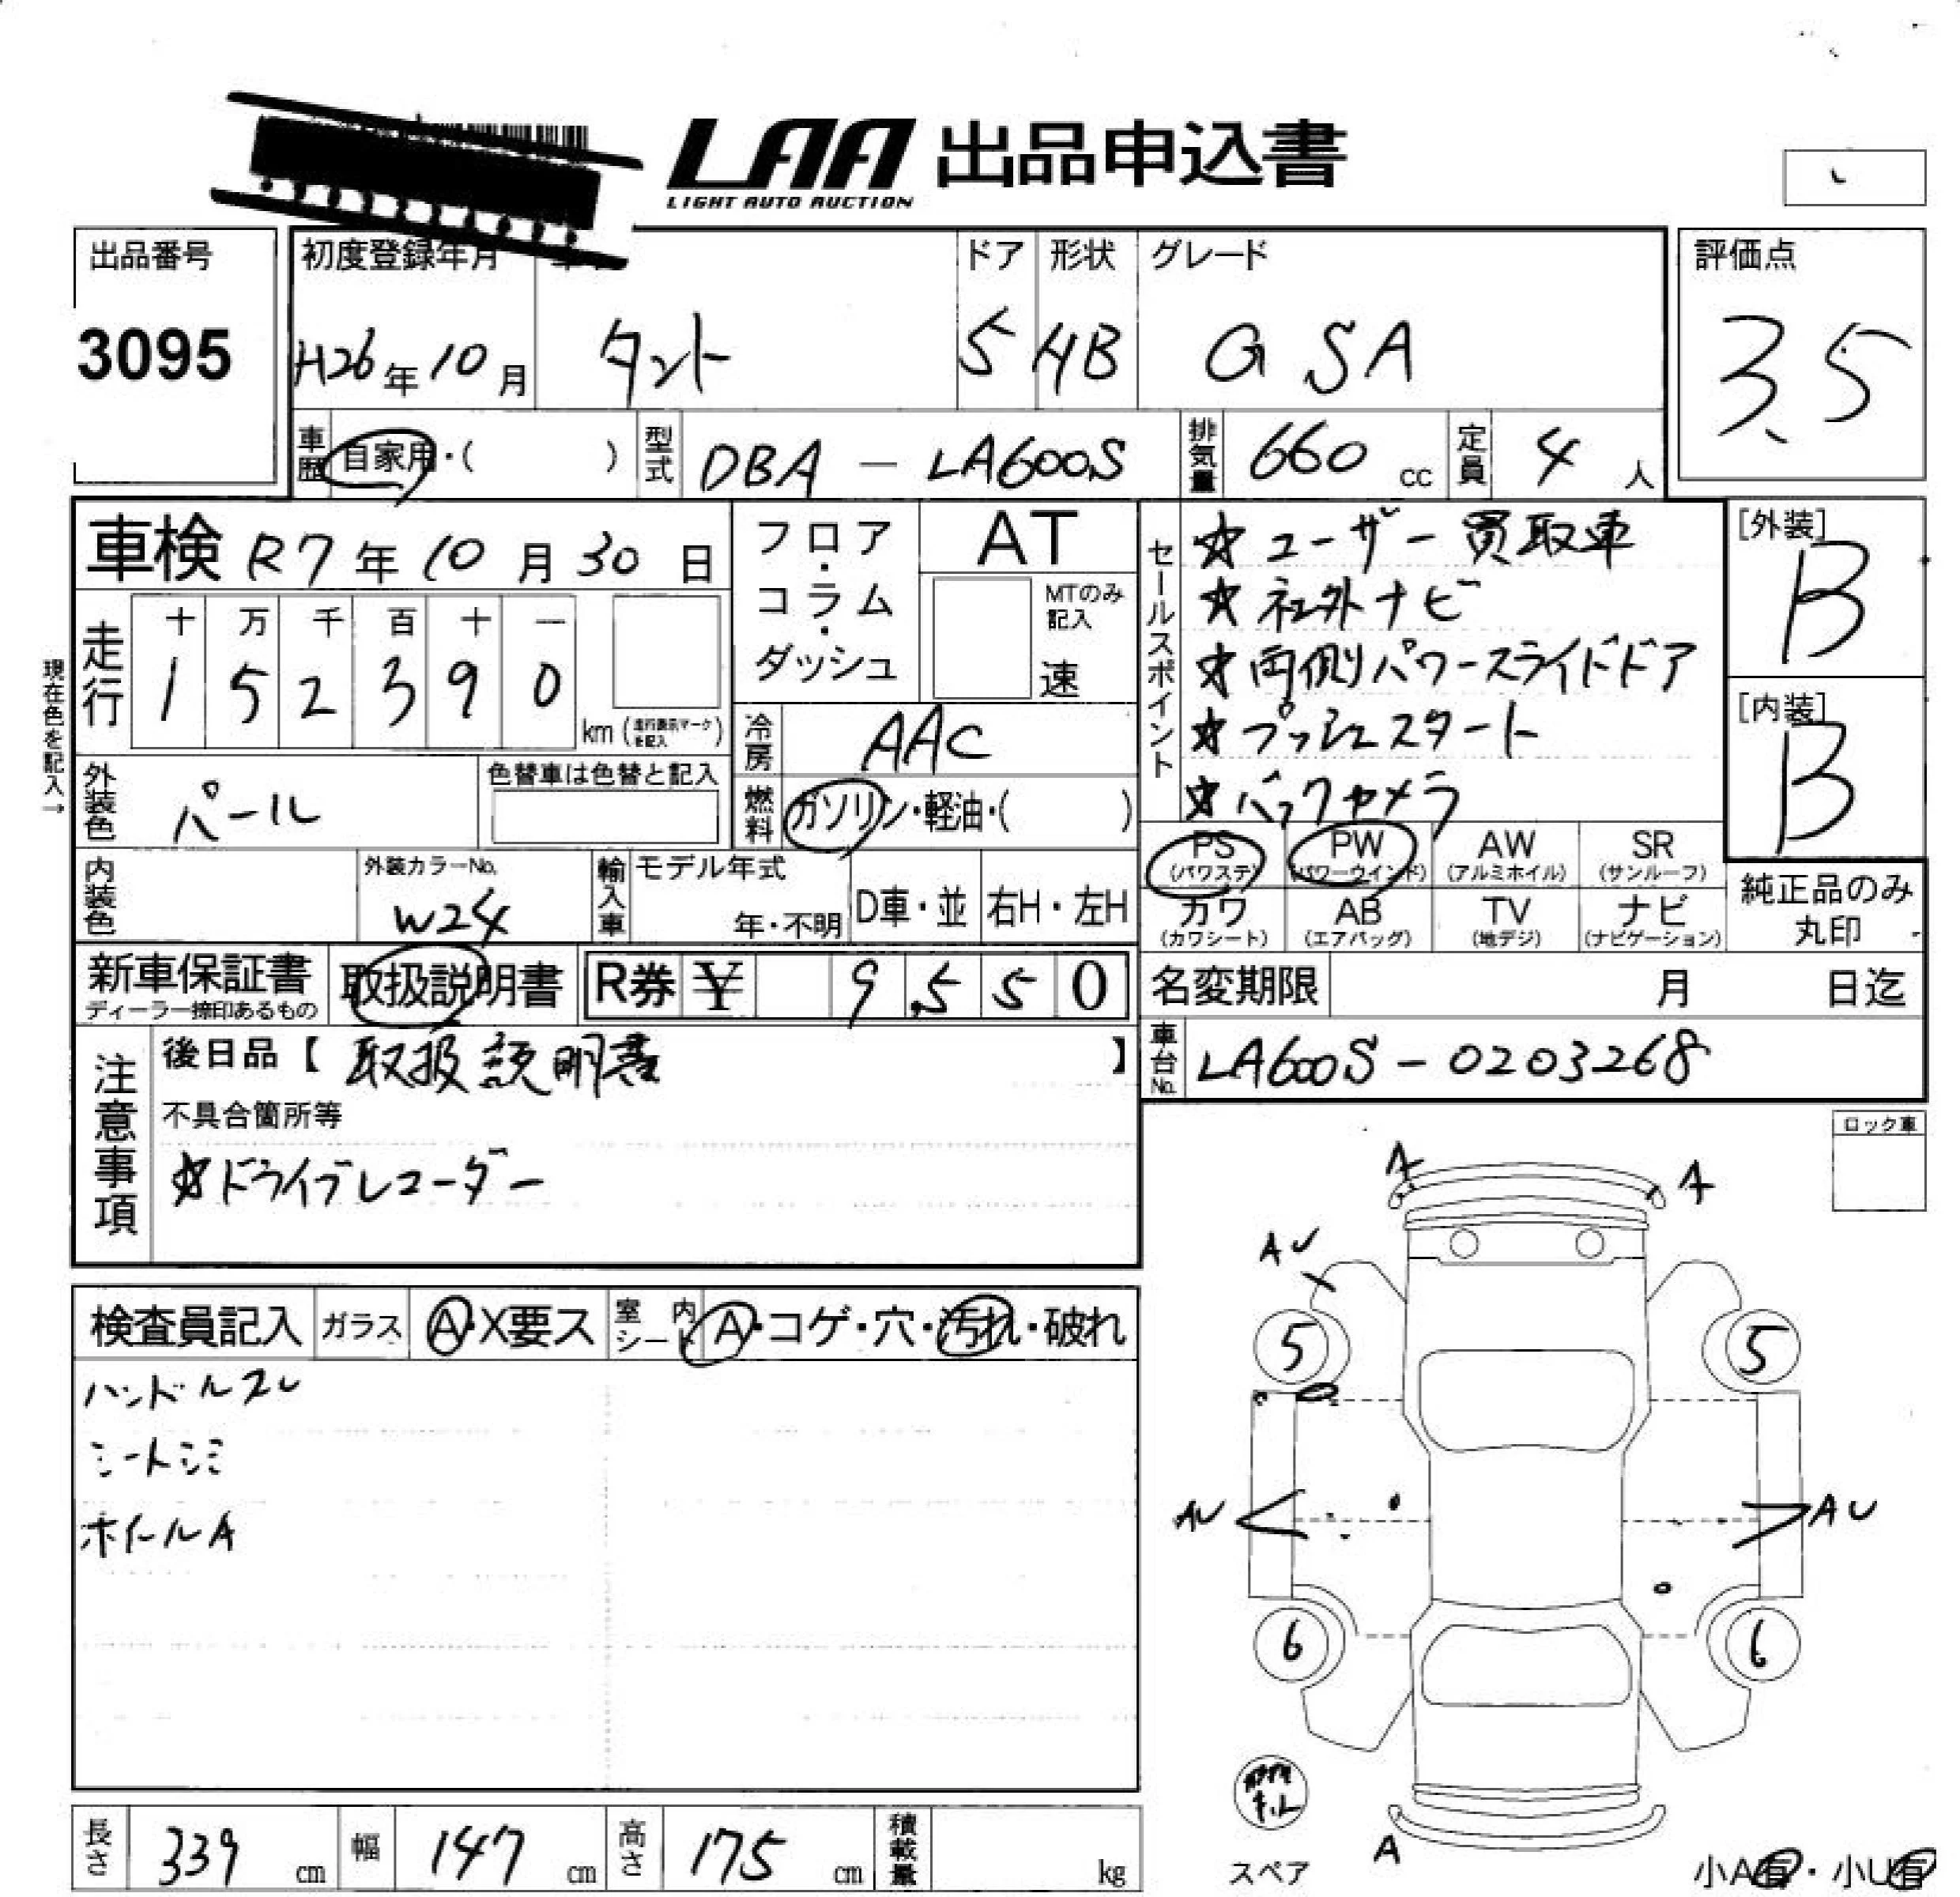 LAA 出品申込書
LIGHT AUTO AUCTION
出品番号
3095
初度登録年月
H26年10月
タント
ドア
5
形状
HB
グレード
G SA
評価点
3.5
車歴
自家用・( )
型式
DBA - LA600S
排気量
660 cc
定員
4 人
車検 R7年10月30日
走行
十 万 千 百 十 一
1 5 2 3 9 0
km (走行表示マークを記入)
現在色を記入→
フロア・コラム・ダッシュ
AT
MTのみ記入
速
冷房
AAC
燃料
ガソリン・軽油・( )
外装色
パール
色替車は色替と記入
内装色
外装カラーNo.
W24
輸入車
モデル年式
年・不明
D車・並
右H・左H
セールスポイント
☆ユーザー買取車
☆社外ナビ
☆両側パワースライドドア
☆プッシュスタート
☆バックカメラ
[外装]
B
[内装]
B
PS (パワステ)
PW (パワーウインド)
AW (アルミホイル)
SR (サンルーフ)
カワ (カワシート)
AB (エアバッグ)
TV (地デジ)
ナビ (ナビゲーション)
純正品のみ
丸印
新車保証書
ディーラー捺印あるもの
取扱説明書
R券 ¥ 9,550
名変期限 月 日迄
車台No.
LA600S-0203268
注意事項
後日品【 取扱説明書 】
不具合箇所等
☆ドライブレコーダー
ロック車
検査員記入
ガラス
A・X要ス
室内シート
A・コゲ・穴・汚れ・破れ
ハンドルスレ
シートシミ
ホイールA
A
A
AU
5
5
AU
AU
6
6
A
スペア
小A有・小U有
長さ 339 cm
幅 147 cm
高さ 175 cm
積載量 kg